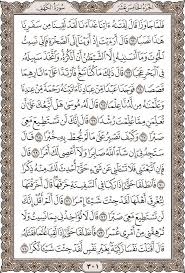 الجزء الخامس عشر سورة الكهف
فَلَمَّا جَاوَزَا قَالَ لِفَتَىٰهُ ءَاتِنَا غَدَآءَنَا لَقَدْ لَقِينَا مِن سَفَرِنَا
هَٰذَا نَصَبًا ٦٢ قَالَ أَرَءَيْتَ إِذْ أَوَيْنَآ إِلَى ٱلصَّخْرَةِ فَإِنِّي نَسِيتُ
ٱلْحُوتَ وَمَآ أَنسَىٰنِيهُ إِلَّا ٱلشَّيْطَٰنُ أَنْ أَذْكُرَهُۥ وَٱتَّخَذَ سَبِيلَهُۥ
فِي ٱلْبَحْرِ عَجَبًا ٦٣ قَالَ ذَٰلِكَ مَا كُنَّا نَبْغِ فَٱرْتَدَّا عَلَىٰٓ ءَاثَارِهِمَا
قَصَصًا ٦٤ فَوَجَدَا عَبْدًا مِّنْ عِبَادِنَآ ءَاتَيْنَٰهُ رَحْمَةً مِّنْ عِندِنَا
وَعَلَّمْنَٰهُ مِن لَّدُنَّا عِلْمًا ٦٥ قَالَ لَهُۥ مُوسَىٰ هَلْ أَتَّبِعُكَ عَلَىٰٓ أَن
تُعَلِّمَنِ مِمَّا عُلِّمْتَ رُشْدًا ٦٦ قَالَ إِنَّكَ لَن تَسْتَطِيعَ مَعِيَ
صَبْرًا ٦٧ وَكَيْفَ تَصْبِرُ عَلَىٰ مَا لَمْ تُحِطْ بِهِۦ خُبْرًا ٦٨ قَالَ
سَتَجِدُنِيٓ إِن شَآءَ ٱللَّهُ صَابِرًا وَلَآ أَعْصِي لَكَ أَمْرًا ٦٩ قَالَ
فَإِنِ ٱتَّبَعْتَنِي فَلَا تَسْـَٔلْنِي عَن شَيْءٍ حَتَّىٰٓ أُحْدِثَ لَكَ مِنْهُ ذِكْرًا
٧٠ فَٱنطَلَقَا حَتَّىٰٓ إِذَا رَكِبَا فِي ٱلسَّفِينَةِ خَرَقَهَا قَالَ أَخَرَقْتَهَا
لِتُغْرِقَ أَهْلَهَا لَقَدْ جِئْتَ شَيْـًٔا إِمْرًا ٧١ قَالَ أَلَمْ أَقُلْ إِنَّكَ
لَن تَسْتَطِيعَ مَعِيَ صَبْرًا ٧٢ قَالَ لَا تُؤَاخِذْنِي بِمَا نَسِيتُ وَلَا
تُرْهِقْنِي مِنْ أَمْرِي عُسْرًا ٧٣ فَٱنطَلَقَا حَتَّىٰٓ إِذَا لَقِيَا غُلَٰمًا فَقَتَلَهُۥ
قَالَ أَقَتَلْتَ نَفْسًا زَكِيَّةًۢ بِغَيْرِ نَفْسٍ لَّقَدْ جِئْتَ شَيْـًٔا نُّكْرًا ٧٤
٣٠١